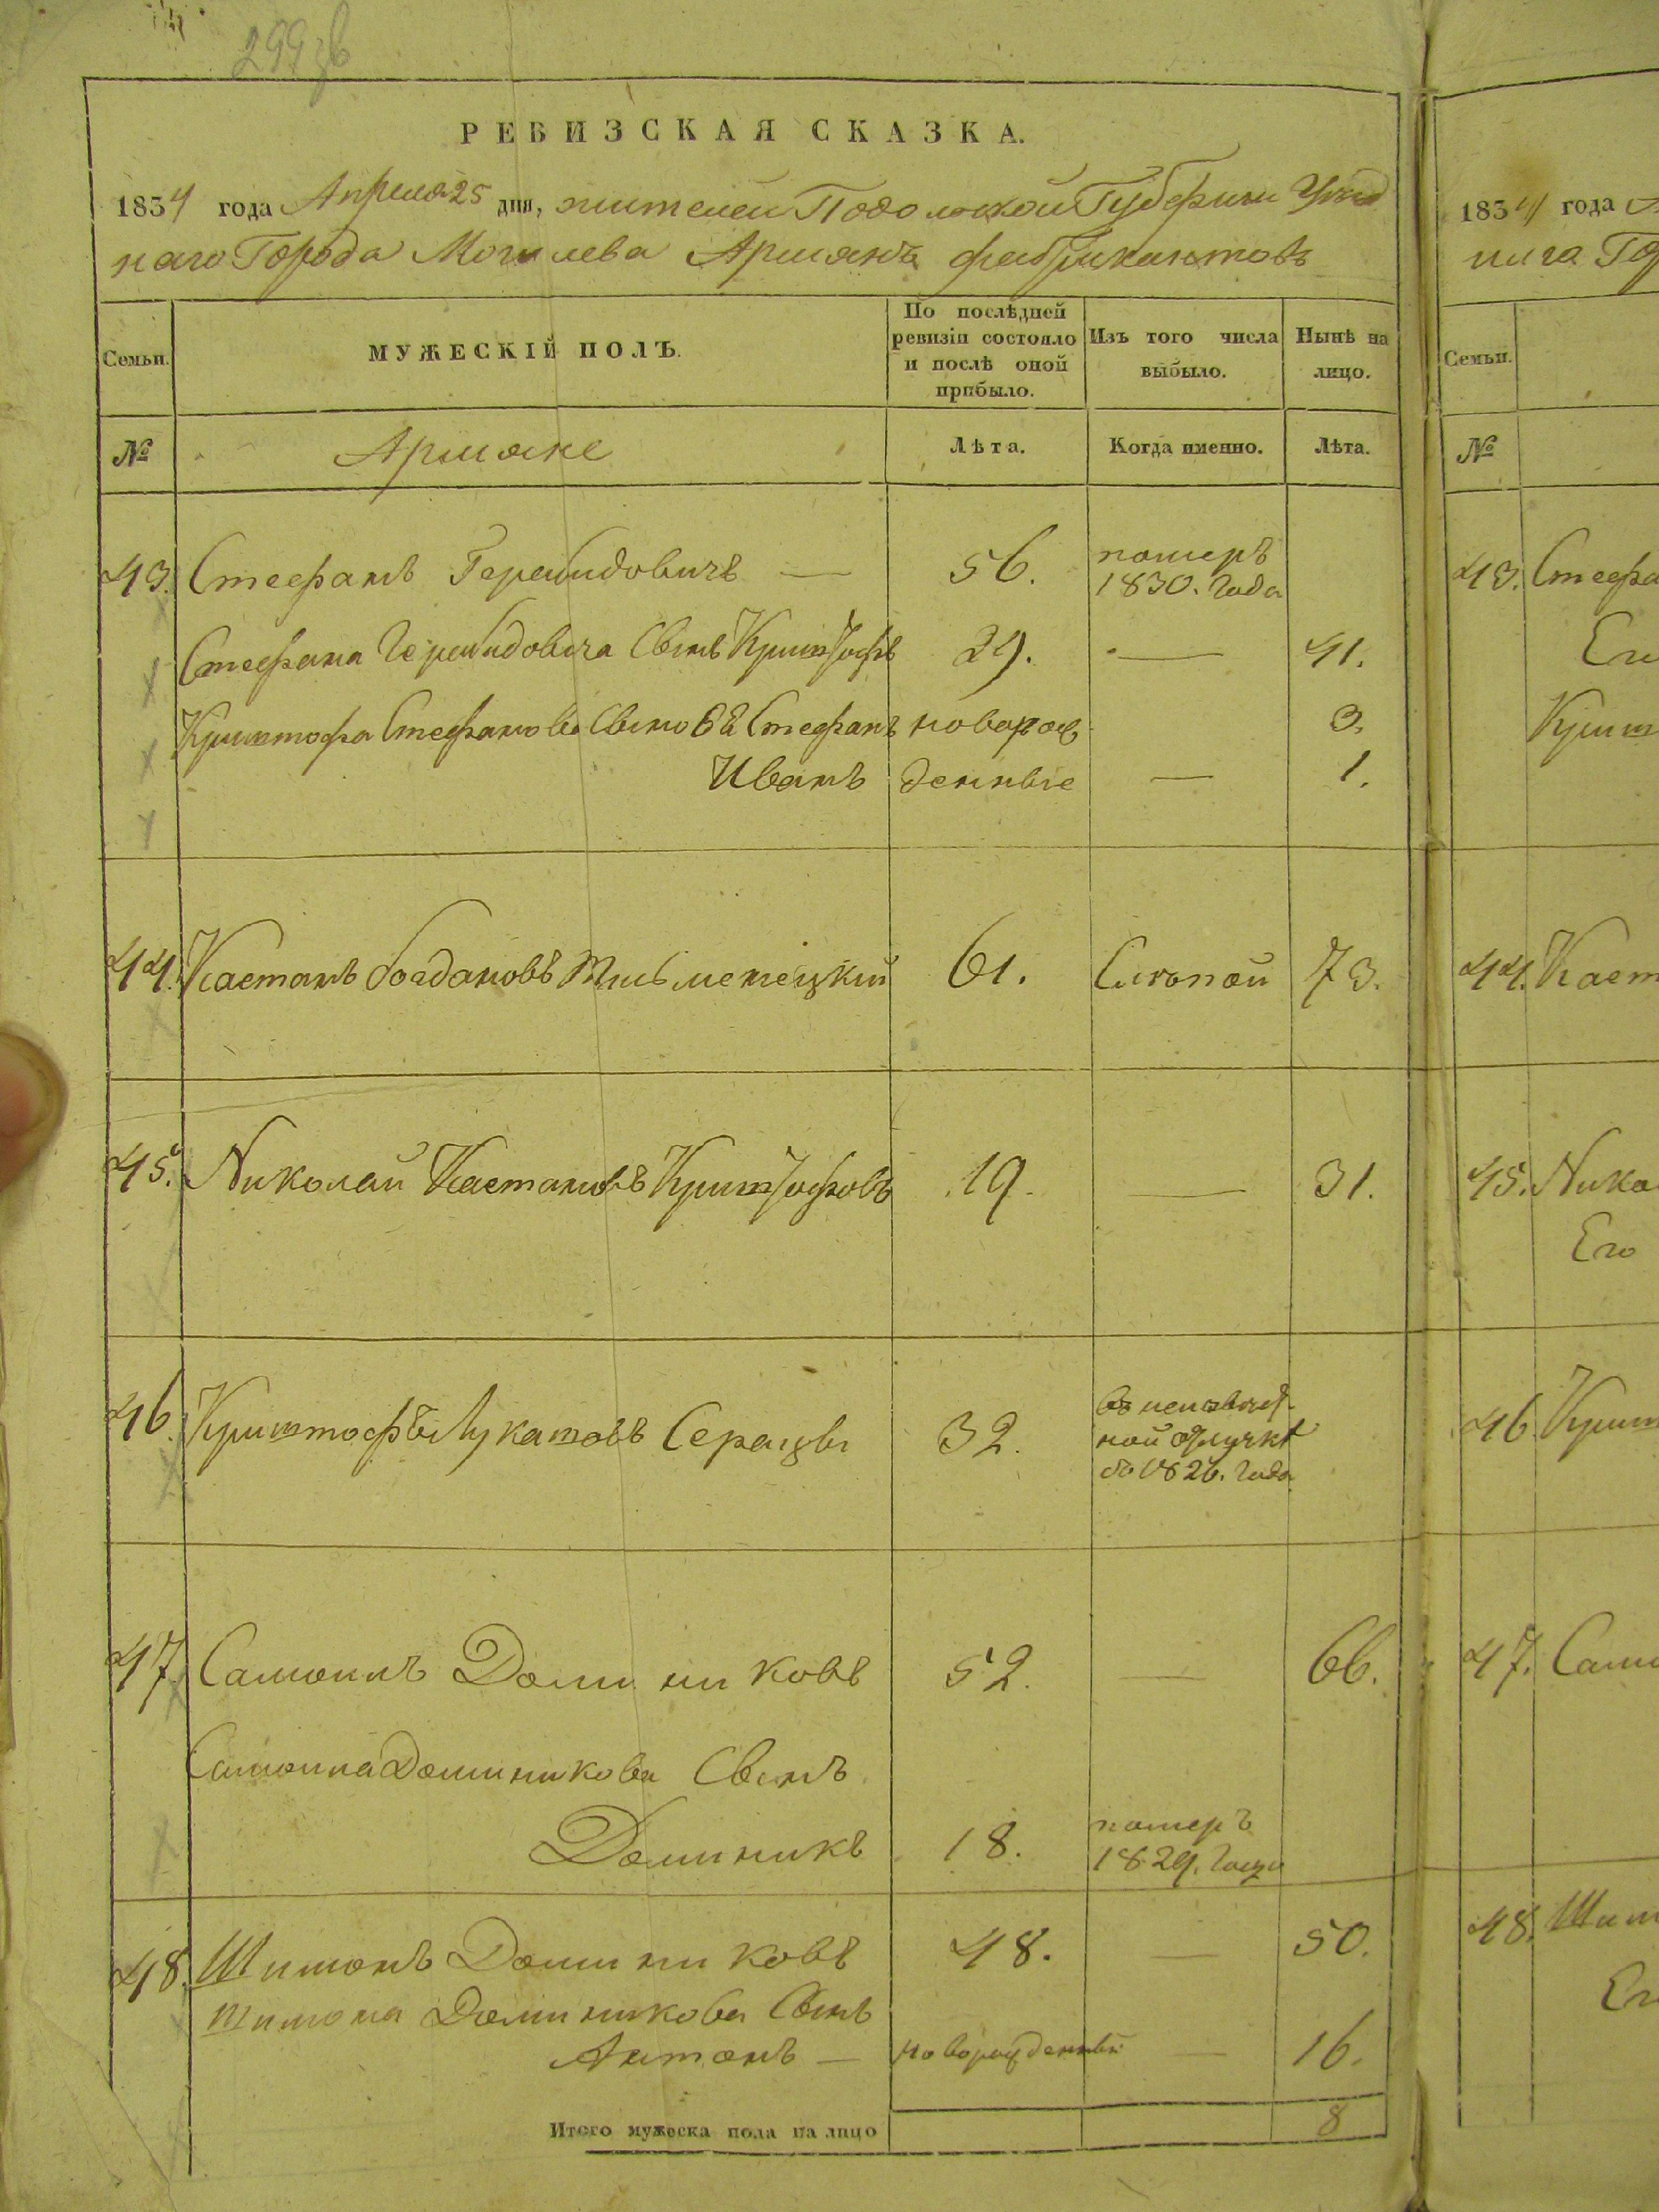 299 зв
РЕВИЗСКАЯ СКАЗКА.
1834 года Апреля 25 дня, жителей Подольской Губернии Уезд
наго Города Могилева Армянъ фабрикантовъ
Семьи.
МУЖЕСКІЙ ПОЛЪ.
По послѣдней ревизіи состояло и послѣ оной прибыло.
Изъ того числа выбыло.
Нынѣ на лицо.
№
Армяне
Лѣта.
Когда именно.
Лѣта.
43. Стефанъ — 56. померъ 1830. Года
Стефана Сынъ Криштофъ 29. — 41.
Криштофа Стефанова Сыновья Стефанъ новорож 3.
Иванъ денные — 1.
44. Каетанъ Богдановъ 61. Слепой 73.
45. Николай Каетановъ Криштофовъ 19. — 31.
46. Криштофъ 32. въ неизвест
ной отлучке
съ 1826. Года
47. Самоилъ Доминиковъ 52. — 66.
Самоила Доминикова Сынъ
Доминикъ 18. померъ 1829. Года
48. Шимонъ Доминиковъ 48. — 50.
Шимона Доминикова Сынъ
Антонъ — новорожденный — 16.
Итого мужеска пола на лицо 8
1834 года
нига
Семьи.
№
43. Стефа
Его
Криш
44. Кает
45. Нико
Его
46 Криш
47. Само
48. Шим
Ег